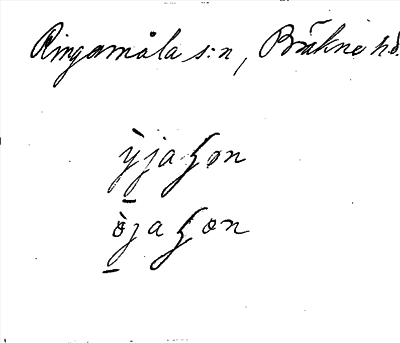 Ringamåla s:n, Bräkne hd.
ỳjaꞕøn
ɵ̀jaꞕøn